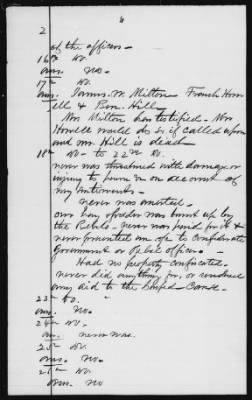 6
2
of the officers —
16th Do.
ans. No. —
17th Do.
ans. James M Milton French How
ell & Ben. Hill
Mr Milton has testified — Mr
Howell would do so if called upon
and Mr. Hill is dead
18th Do — to 22nd Do.
never was threatened with damage or
injury to person on account of
my sentiments —
never was arrested —
our hay & fodder was burnt up by
the Rebels — never was paid for it &
never presented an a/c to Confederate
Government or Rebel officers —
Had no property confiscated —
never did anything for or rendered
any aid to the Confed— Cause —
23rd Do.
ans. No.
24th Do.
an. never was.
25th Do.
ans. No.
26th Do.
ans. No